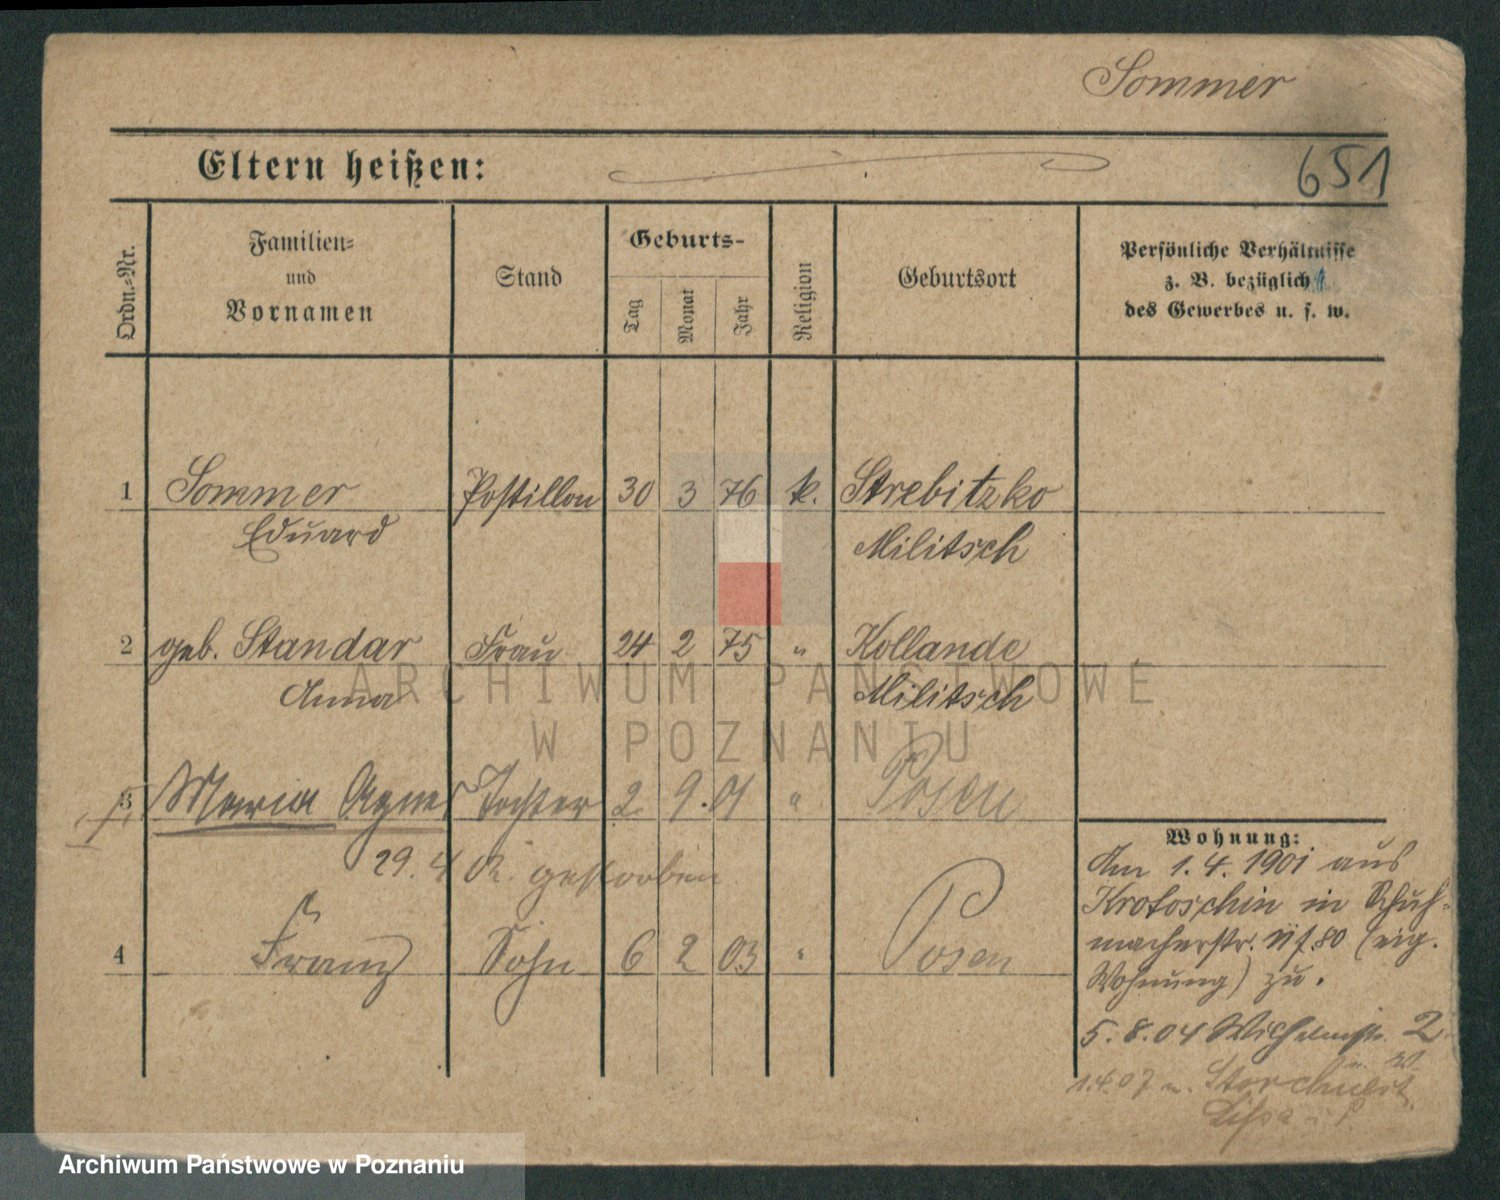 Sommer
Eltern heißen:
651
Ordn.-Nr.
Familien-
und
Vornamen
Stand
Geburts-
Tag
Monat
Jahr
Religion
Geburtsort
Persönliche Verhältnisse
z. B. bezüglich
des Gewerbes u. s. w.
1 Sommer Postillon 30 3 76 k. Strebitzko
Eduard Militsch
2 geb. Standar Frau 24 2 75 " Kollande
Anna Militsch
3 Maria Agnes Tochter 2. 9. 01 " Posen
29. 4 02. gestorben
4 Franz Sohn 6 2 03 " Posen
Wohnung:
Am 1. 4. 1901 aus
Krotoschin in Schuh-
macherstr. (eig.
Wohnung) zu.
5. 8. 04 Wilhelmstr. 2
1.4.07 n. Storchnest
Lissa i. P.
ARCHIWUM PAŃSTWOWE
W POZNANIU
Archiwum Państwowe w Poznaniu